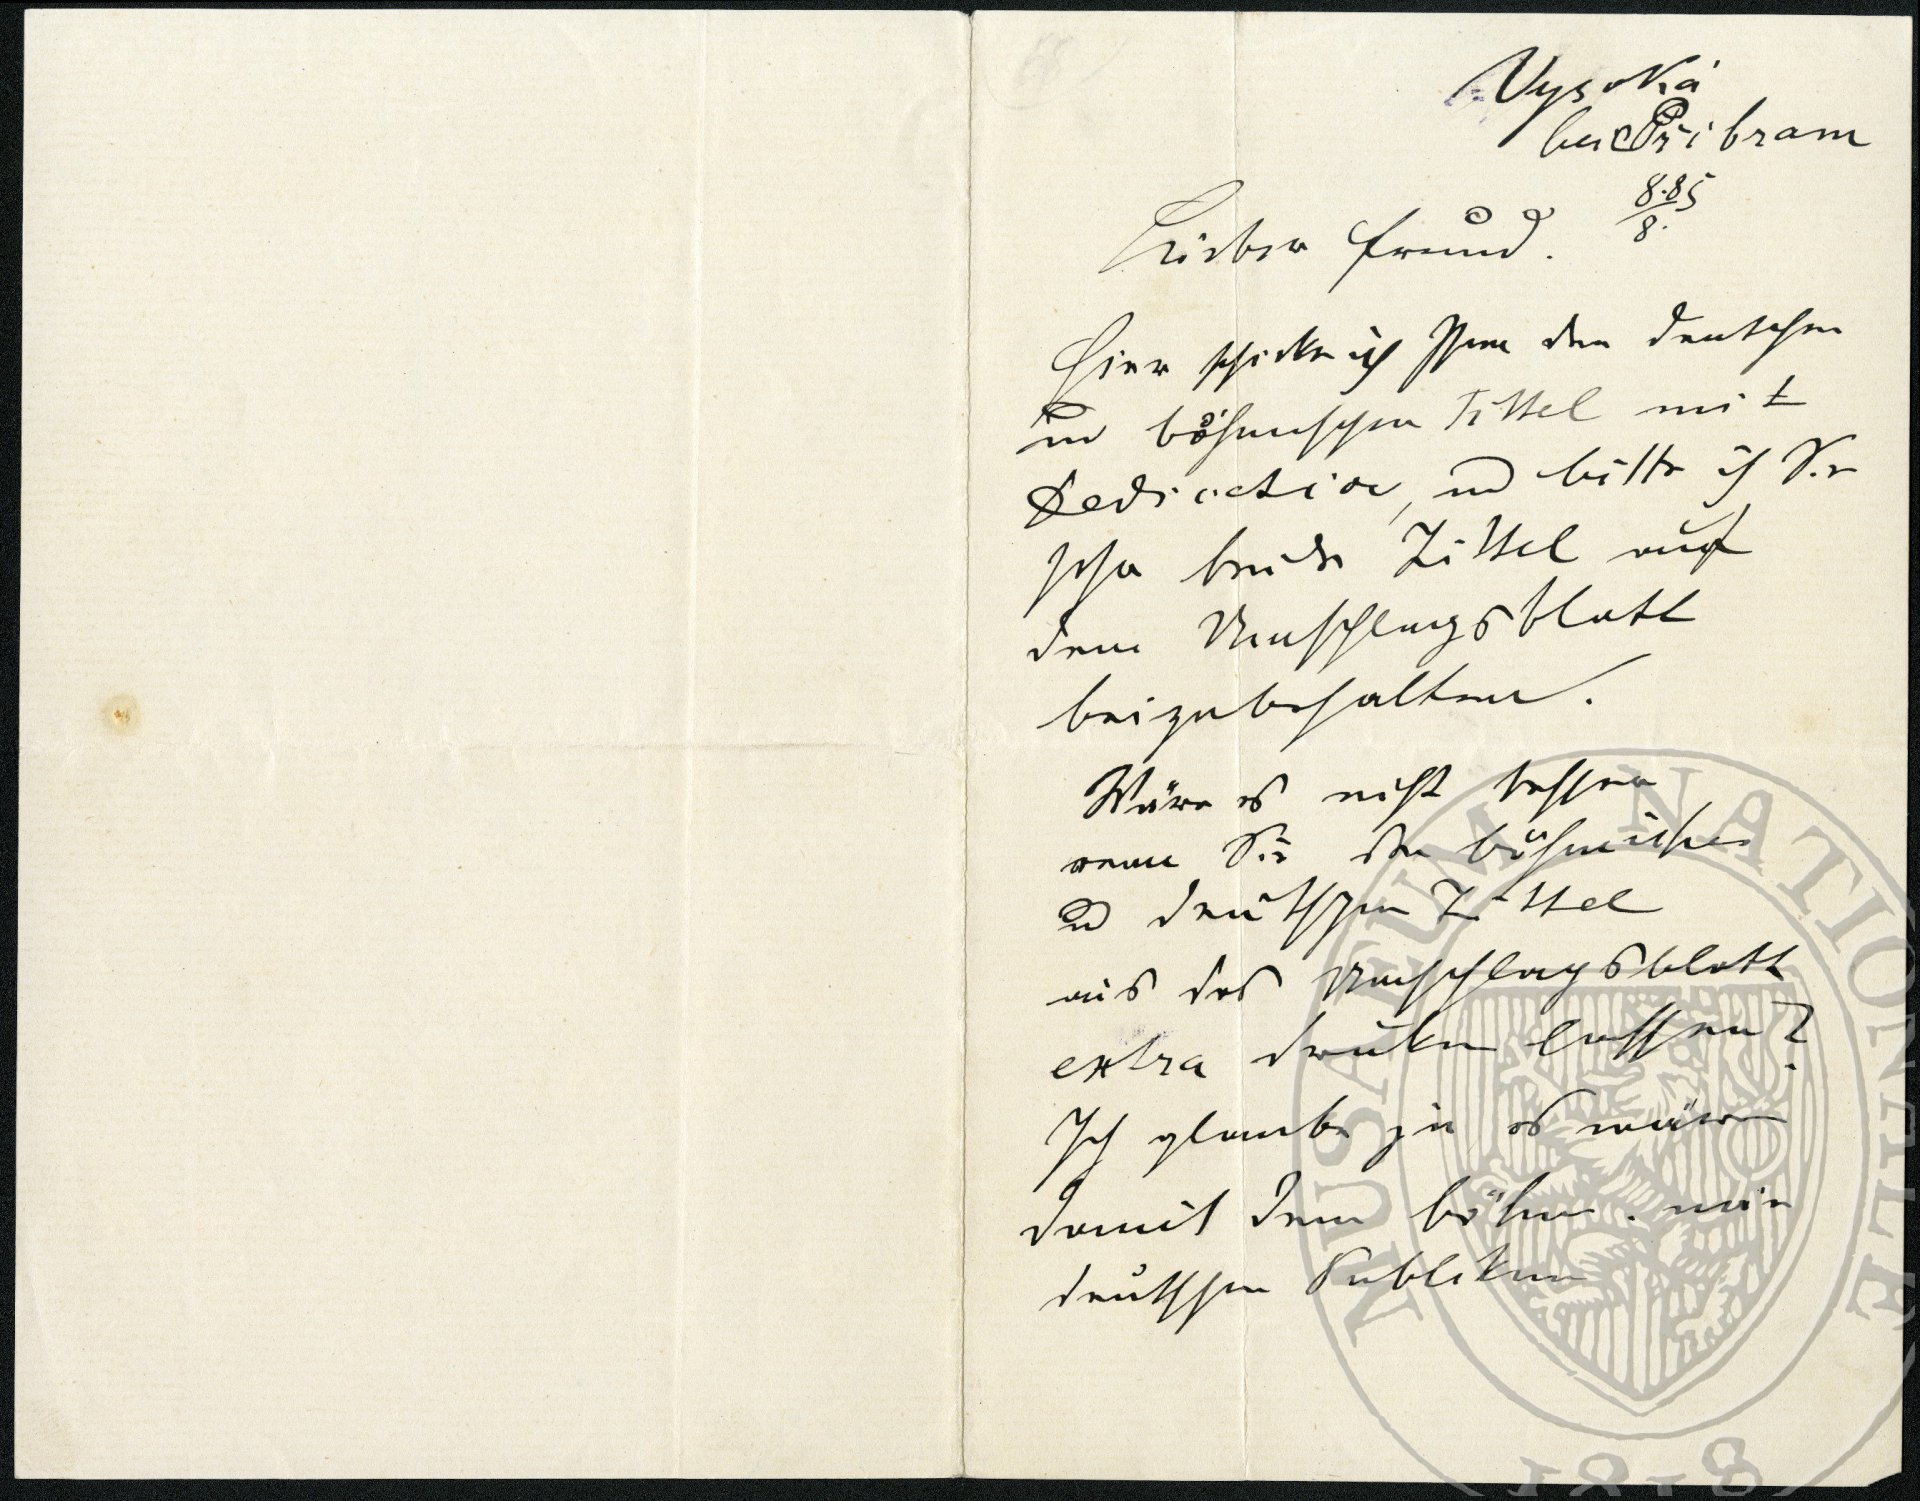 Vysoká
bei Přibram
8.85
8.
Lieber Freund.
Hier schicke ich Ihnen den deutschen
und böhmischen Tittel mit
Dedication, und bitte ich Sie
sehr beide Tittel auf
dem Umschlagsblatt
beizubehalten.
Wäre es nicht besser
wenn Sie den böhmischen
und deutschen Tittel
aus das Umschlagsblatt
extra druken lassen?
Ich glaube ja es wäre
damit dem böhm. wie
deutschen Publikum
MUSAEUM NATIONALE
1818